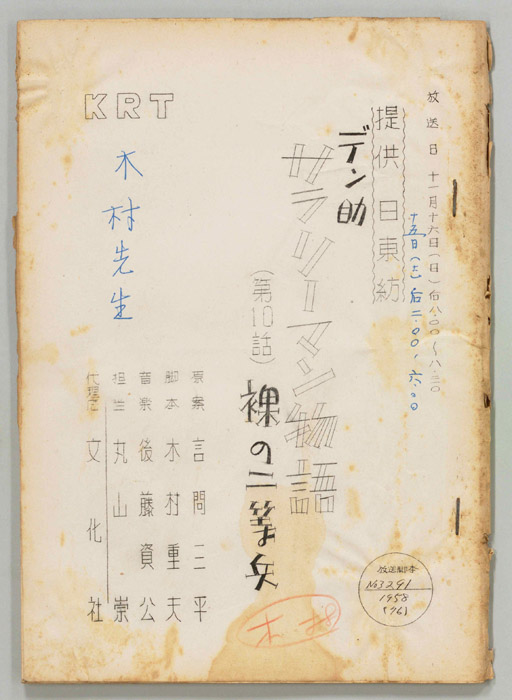 放送日 十一月十六日(日)后八.00〜八.30
十五日(土)后二.00〜六.00
提供 日東紡
デン助
サラリーマン物語
(第10話)
裸の二等兵
原案 言問三平
脚本 木村重夫
音楽 後藤資公
担当 丸山崇
代理店 文化社
KRT
木村先生
放送脚本
No3291
1958
(76)